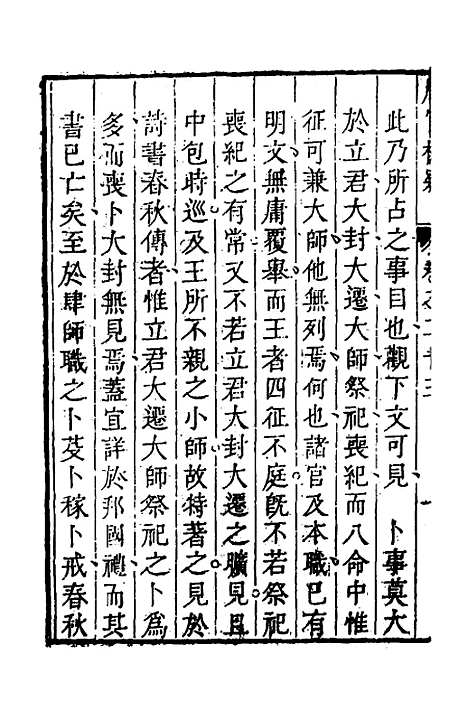 此乃所占之事目也觀下文可見　卜事莫大
於立君大封大遷大師祭祀喪紀而八命中惟
征可兼大師他無列焉何也諸官及本職已有
明文無庸覆舉而王者四征不庭旣不若祭祀
喪紀之有常又不若立君大封大遷之曠見且
中包時巡及王所不親之小師故特著之見於
詩書春秋傳者惟立君大遷大師祭祀之卜爲
多而喪卜大封無見焉蓋宜詳於邦國禮而其
書已亡矣至於肆師職之卜芟卜稼卜戒春秋